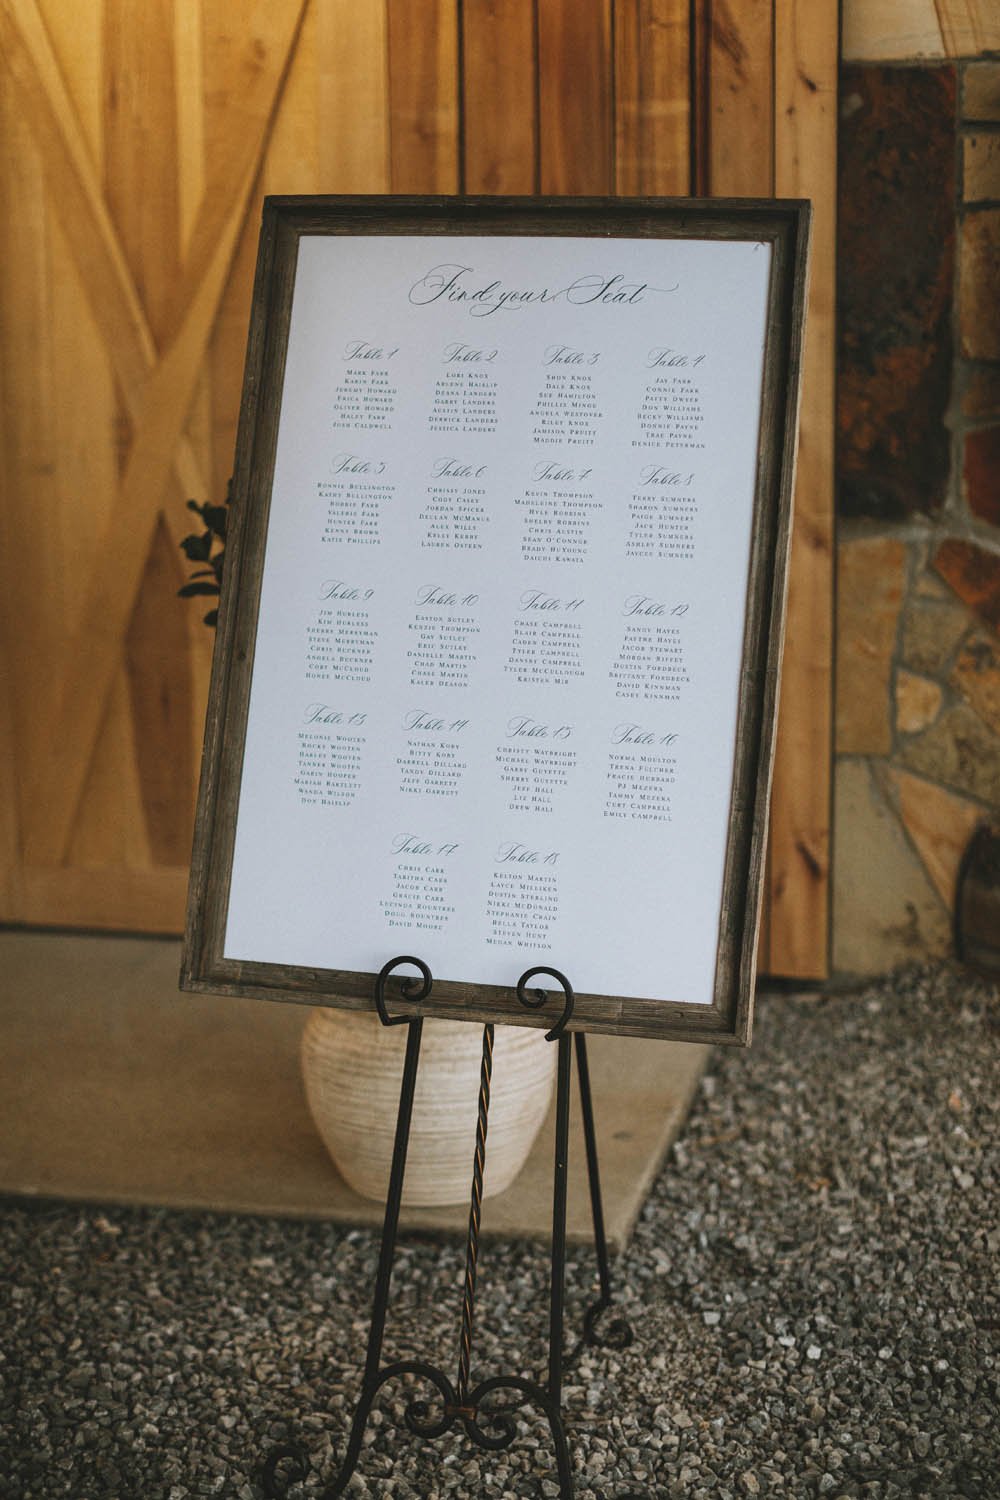 Find your Seat
Table 1
Mark Farr
Karin Farr
Jeremy Howard
Erica Howard
Oliver Howard
Haley Farr
Josh Caldwell
Table 2
Lori Knox
Arlene Haislip
Deana Landers
Garry Landers
Austin Landers
Derrick Landers
Jessica Landers
Table 3
Shon Knox
Dale Knox
Sue Hamilton
Phillis Minge
Angela Westover
Riley Knox
Jamison Pruitt
Maddie Pruitt
Table 4
Jay Farr
Connie Farr
Patty Dwyer
Don Williams
Becky Williams
Donnie Payne
Trae Payne
Denice Peterman
Table 5
Ronnie Bullington
Kathy Bullington
Robbie Farr
Valerie Farr
Hunter Farr
Kenny Brown
Katie Phillips
Table 6
Chrissy Jones
Cody Casey
Jordan Spicer
Declan McManus
Alex Wills
Kelly Kerby
Lauren Osteen
Table 7
Kevin Thompson
Madeleine Thompson
Hyle Robbins
Shelby Robbins
Chris Austin
Sean O'Connor
Brady HuYoung
Daichi Kawata
Table 8
Terry Sumners
Sharon Sumners
Paige Sumners
Jack Hunter
Tyler Sumners
Ashley Sumners
Jaycee Sumners
Table 9
Jim Hurless
Kim Hurless
Sherry Merryman
Steve Merryman
Chris Buckner
Angela Buckner
Coby McCloud
Honee McCloud
Table 10
Easton Sutley
Kenzie Thompson
Gay Sutley
Eric Sutley
Danielle Martin
Chad Martin
Chase Martin
Kaleb Deason
Table 11
Chase Campbell
Blair Campbell
Caden Campbell
Tyler Campbell
Dansby Campbell
Tyler McCullough
Kristen Mir
Table 12
Sandy Hayes
Faythe Hayes
Jacob Stewart
Morgan Riffey
Dustin Fordbeck
Brittany Fordbeck
David Kinnman
Casey Kinnman
Table 13
Melonie Wooten
Rocky Wooten
Harley Wooten
Tanner Wooten
Gabin Hooper
Mariah Bartlett
Wanda Wilson
Don Haislip
Table 14
Nathan Koby
Bitty Koby
Darrell Dillard
Tandy Dillard
Jeff Garrett
Nikki Garrett
Table 15
Christy Waybright
Michael Waybright
Gabby Guyette
Sherry Guyette
Jeff Hall
Liz Hall
Drew Hall
Table 16
Norma Moulton
Trena Fulcher
Fracie Hubbard
PJ Mezera
Tammy Mezera
Curt Campbell
Emily Campbell
Table 17
Chris Carr
Tabitha Carr
Jacob Carr
Gracie Carr
Lucinda Rountree
Doug Rountree
David Moore
Table 18
Kelton Martin
Layce Milliken
Dustin Sterling
Nikki McDonald
Stephanie Crain
Bella Taylor
Steven Hunt
Megan Whitson